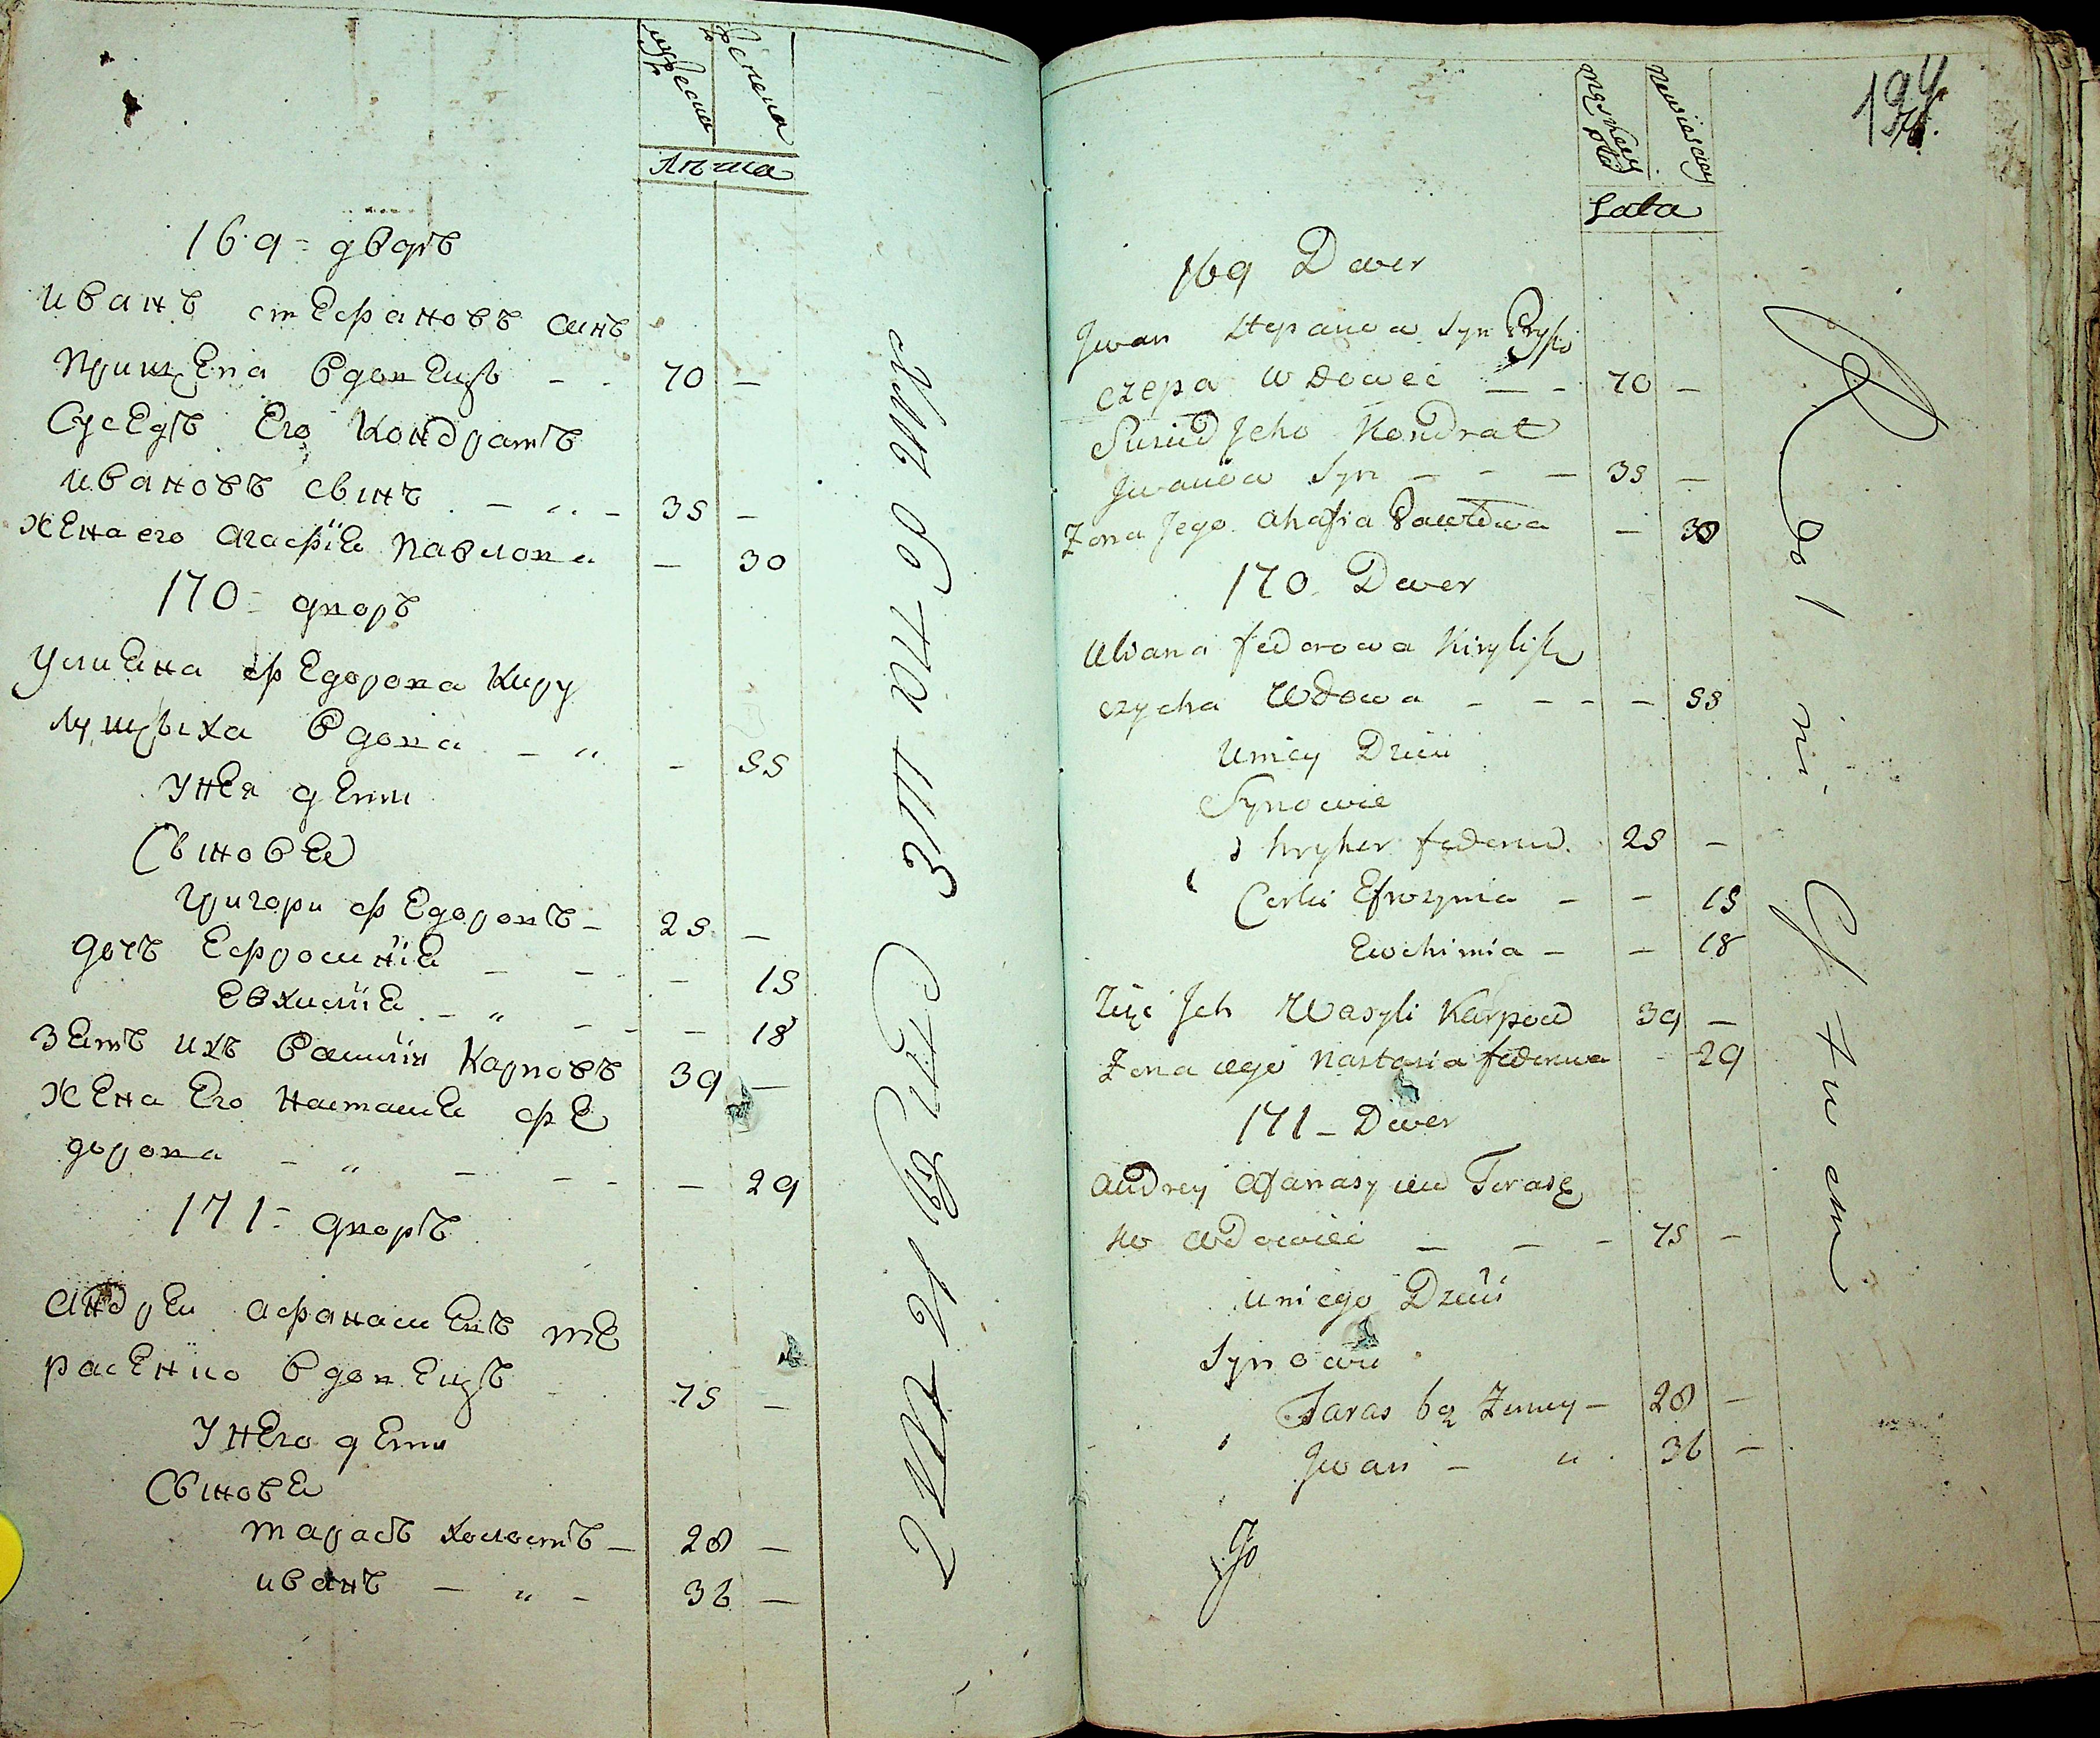 лѣта
169 = дворъ
иванъ стефановъ синъ
прищепа вдовецъ - - 70 -
Сусѣдъ Его Кондратъ
ивановъ сынъ - „ - 35 -
жена его агафія павлова - 30
170 = дворъ
Улиена федорова Киру
лущыха вдова - „ - 55
У нея дети
Сынове
григори федоровъ - 25 -
дочъ Ефросинія - - - 15
Евхимие - „ - - - 18
Зетъ ихъ Васили Карповъ 39 -
жена Его настасие фе
дорова - „ - - - - 29
171 = дворъ
андреи афанасиевъ те
расенко вдовецъ 75 -
У Него дети
Сынове
тарасъ холостъ - 28 -
иванъ - „ - 36 -
194
Lata
169 Dwor
Jwan Stepanow Syn Prysz
czepa Wdowec - - 70 -
Susied Jeho Kondrat
Jwanow Syn - - - 35 -
Zona Jego Ahafia Pawłowa - 30
170 Dwor
Uliana fedorowa Kirylisz
czycha Wdowa - - - - 55
U niey Dzieci
Synowie
Hryhor fedorow. 25 -
Corki Efrozynia - - 15
Ewchimia - - 18
Zięć Jch Wasyli Karpow 39 -
Zona iego Nastasia fedorowa - 29
171 - Dwor
Andrey Afanasyiew Terase
ko Wdowiec - - - 75 -
U niego Dzieci
Synowie
Taras bez Zenny - 28 -
Jwan - „ . 36 -